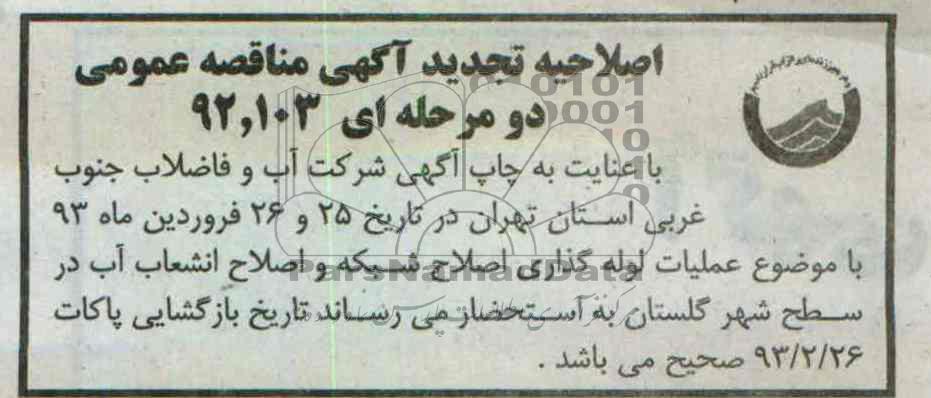 اصلاحیه تجدید آگهی مناقصه عمومی
دو مرحله ای ۹۲,۱۰۳
با عنایت به چاپ آگهی شرکت آب و فاضلاب جنوب
غربی استان تهران در تاریخ ۲۵ و ۲۶ فروردین ماه ۹۳
با موضوع عملیات لوله گذاری اصلاح شبکه و اصلاح انشعاب آب در
سطح شهر گلستان به استحضار می رساند تاریخ بازگشایی پاکات
۹۳/۲/۲۶ صحیح می باشد .